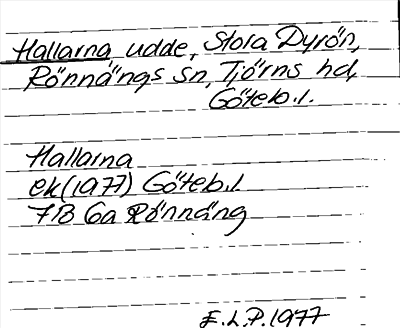 Hallarna udde, Stora Dyrön,
Rönnängs sn, Tjörns hd,
Göteb.l.
Hallarna
ek (1977) Göteb.l.
7B 6a Rönnäng
E.L.P. 1977